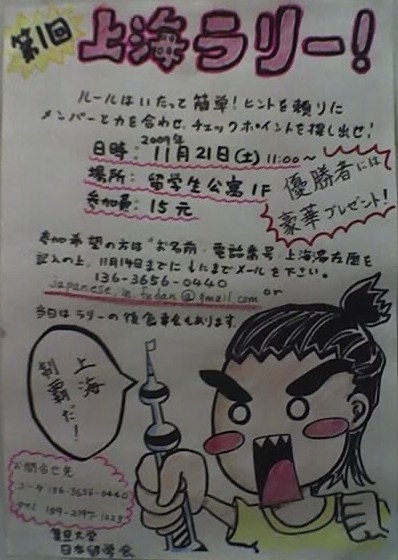 第1回
上海ラリー!
ルールはいたって簡単!ヒントを頼りに
メンバーと力を合わせ、チェックポイントを探し出せ!
2009年
日時: 11月21日(土) 11:00〜
場所: 留学生公寓 1F
参加費: 15元
優勝者には
豪華プレゼント!
参加希望の方は お名前・電話番号・上海滞在歴を
記入の上、11月14日までに↓にまでメールを下さい。
136-3656-0440 or
japanese_in_fudan@gmail.com
当日はラリーの後食事会もあります。
上海
制覇だ!
お問合せ先
コータ 136-3656-0440
復旦大学
日本留学会